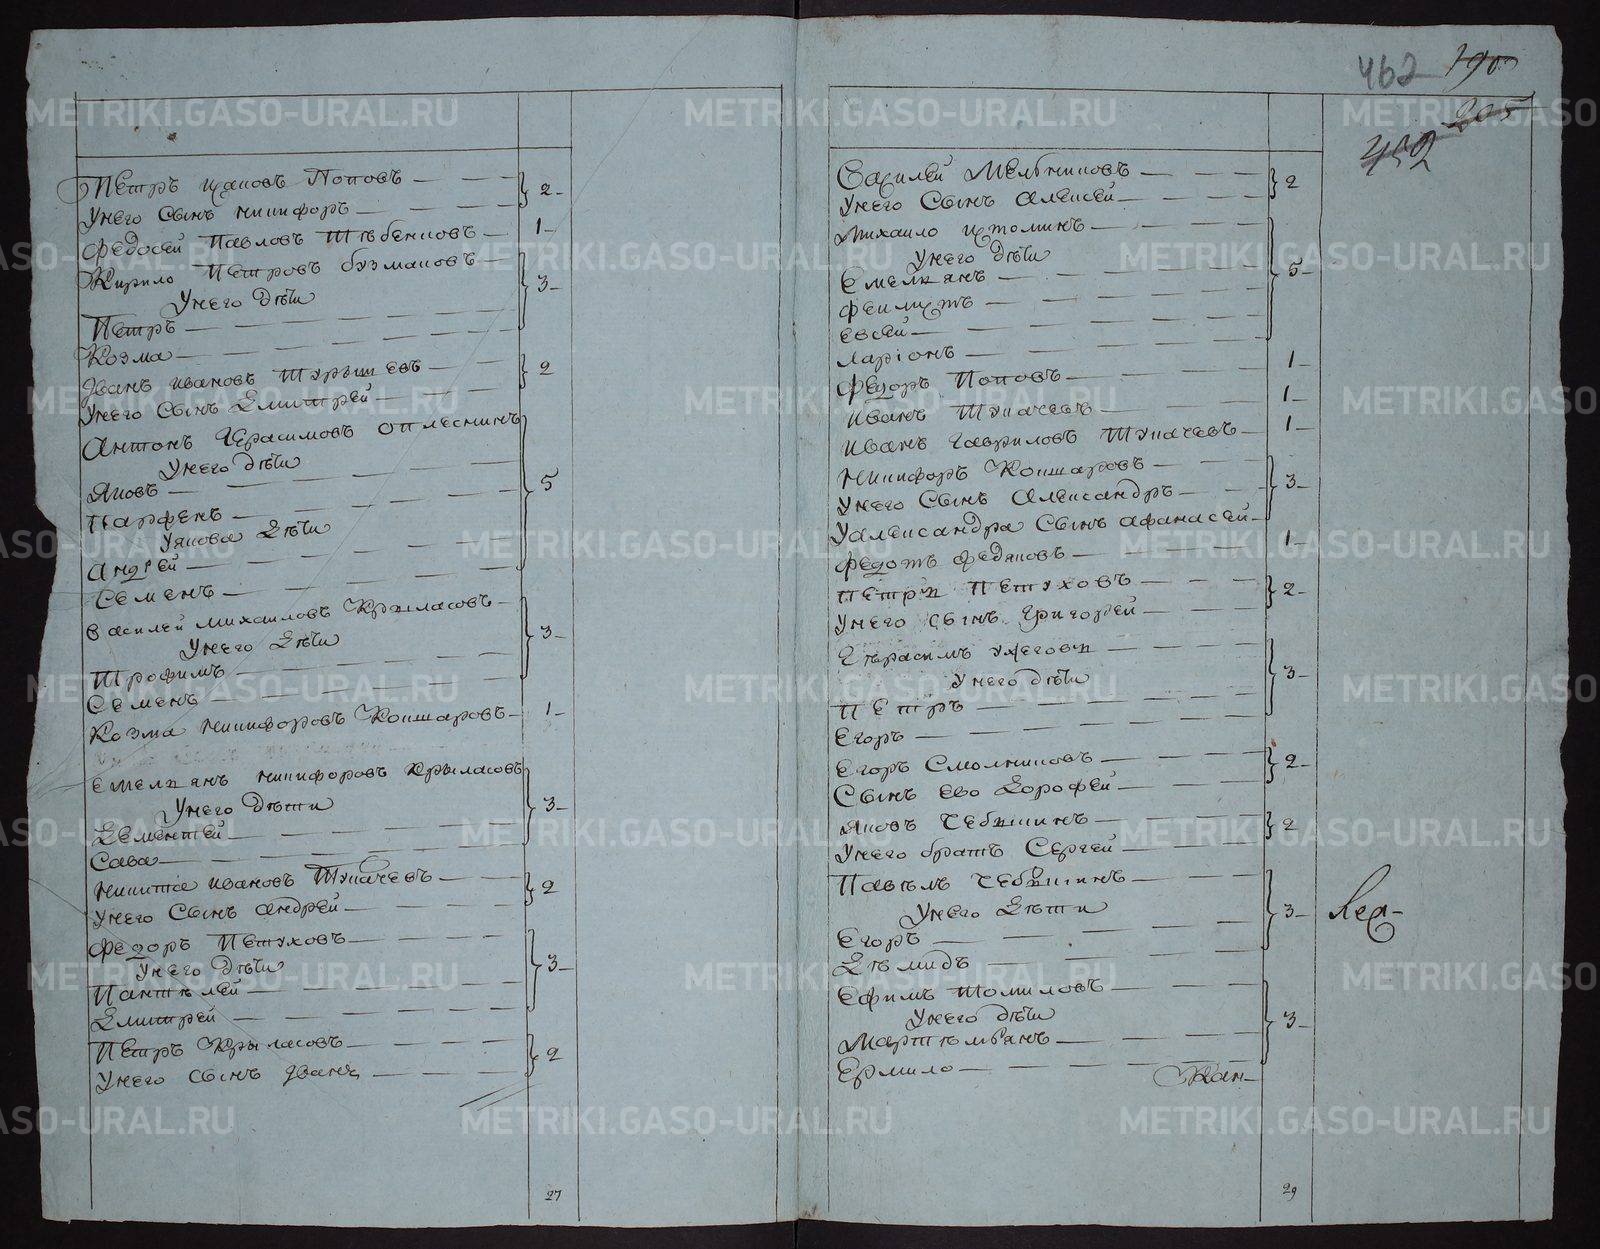 Петръ Поповъ 2
Унего Сынъ никифоръ
Федосей Павловъ 1
Кирило Петровъ бузмаковъ 3
Унего дѣти
Петръ
Козма
Иванъ ивановъ 2
Унего Сынъ Дмитрей
Антонъ Герасимовъ оплеснинъ 5
Унего дѣти
Яковъ
Парфенъ
Уякова Дѣти
Андрей
Семенъ
василей михаиловъ Крыласовъ 3
Унего Дѣти
Трофимъ
Семенъ
Козма никифоровъ Кошкаровъ 1
емелянъ никифоровъ Крыласовъ 3
Унего дѣти
Дементей
Сава
никита ивановъ Тукачевъ 2
Унего Сынъ андрей
Федоръ Петуховъ 3
Унего дѣти
Пантѣлей
Дмитрей
Петръ Крыласовъ 2
Унего сынъ Иванъ
27
462 190
205
452
Мельниковъ 2
Унего Сынъ алексей
Михаило 5
Унего дѣти
Емелянъ
евсей
ларіонъ
Федоръ Поповъ 1
иванъ Тукачевъ 1
иванъ гавриловъ Тукачевъ 1
никифоръ Кошкаровъ 3
Унего Сынъ Александръ
Уалександра Сынъ афанасей
Федотъ федяковъ 1
Петръ Петуховъ 2
Унего сынъ григорей
Герасимъ ужеговъ 3
Унего дѣти
Петръ
Егоръ
Егоръ Смолниковъ 2
Сынъ ево Дорофей
Яковъ Чебыкинъ 2
Унего братъ Сергей
Павелъ Чебыкинъ 3
Унего Дѣти
Егоръ
Дѣмидъ
Ефимъ томиловъ 3
Унего дѣти
Мартѣмьянъ
Ермило
29